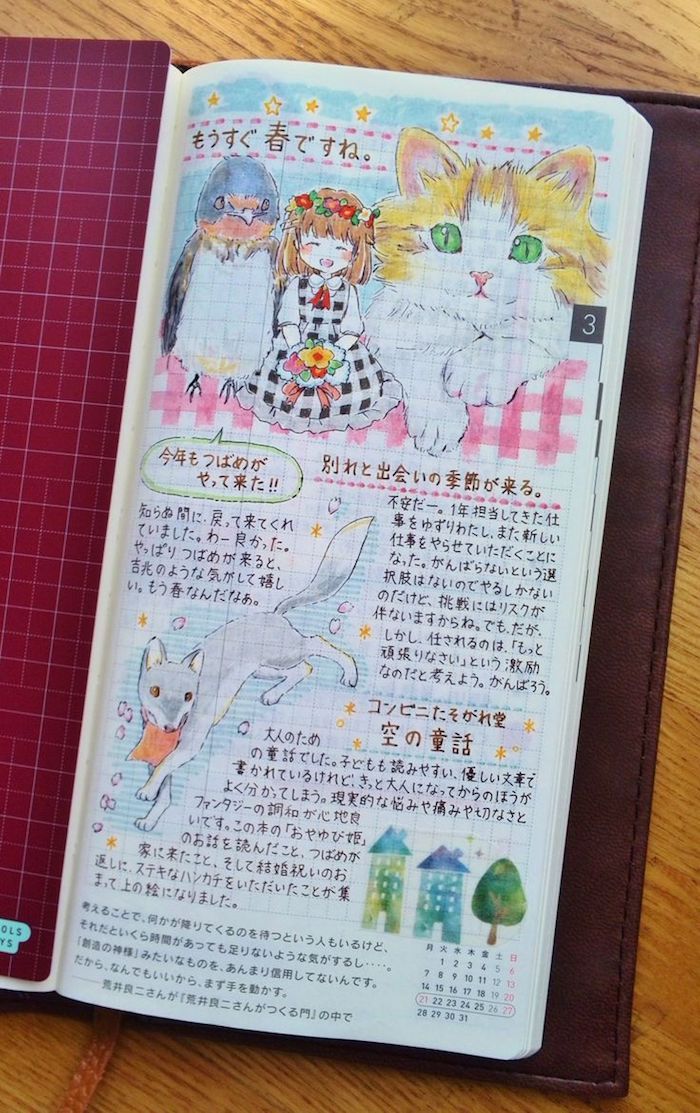 もうすぐ春ですね。
3
今年もつばめが
やって来た!!
知らぬ間に、戻って来てくれ
ていました。わー良かった。
やっぱりつばめが来ると、
吉兆のような気がして嬉し
い。もう春なんだなあ。
別れと出会いの季節が来る。
不安だー。1年担当してきた仕
事をゆずりわたし、また新しい
仕事をやらせていただくことに
なった。がんばらないという選
択肢はないのでやるしかない
のだけど、挑戦にはリスクが
伴ないますからね。でも、だが、
しかし、任されるのは、「もっと
頑張りなさい」という激励
なのだと考えよう。がんばろう。
コンビニたそがれ堂
空の童話
大人のため
の童話でした。子どもも読みやすい、優しい文章で
書かれているけれど、きっと大人になってからのほうが
よく分かってしまう。現実的な悩みや痛みや切なさと
ファンタジーの調和が心地良
いです。この本の「おやゆび姫」
のお話を読んだこと、つばめが
家に来たこと、そして結婚祝いのお
返しに、ステキなハンカチをいただいたことが集
まって上の絵になりました。
考えることで、何かが降りてくるのを待つという人もいるけど、
それだといくら時間があっても足りないような気がするし‥‥。
「創造の神様」みたいなものを、あんまり信用してないんです。
だから、なんでもいいから、まず手を動かす。
──荒井良二さんが『荒井良二さんがつくる門』の中で
月 火 水 木 金 土 日
1 2 3 4 5 6
7 8 9 10 11 12 13
14 15 16 17 18 19 20
21 22 23 24 25 26 27
28 29 30 31
OLS
YS